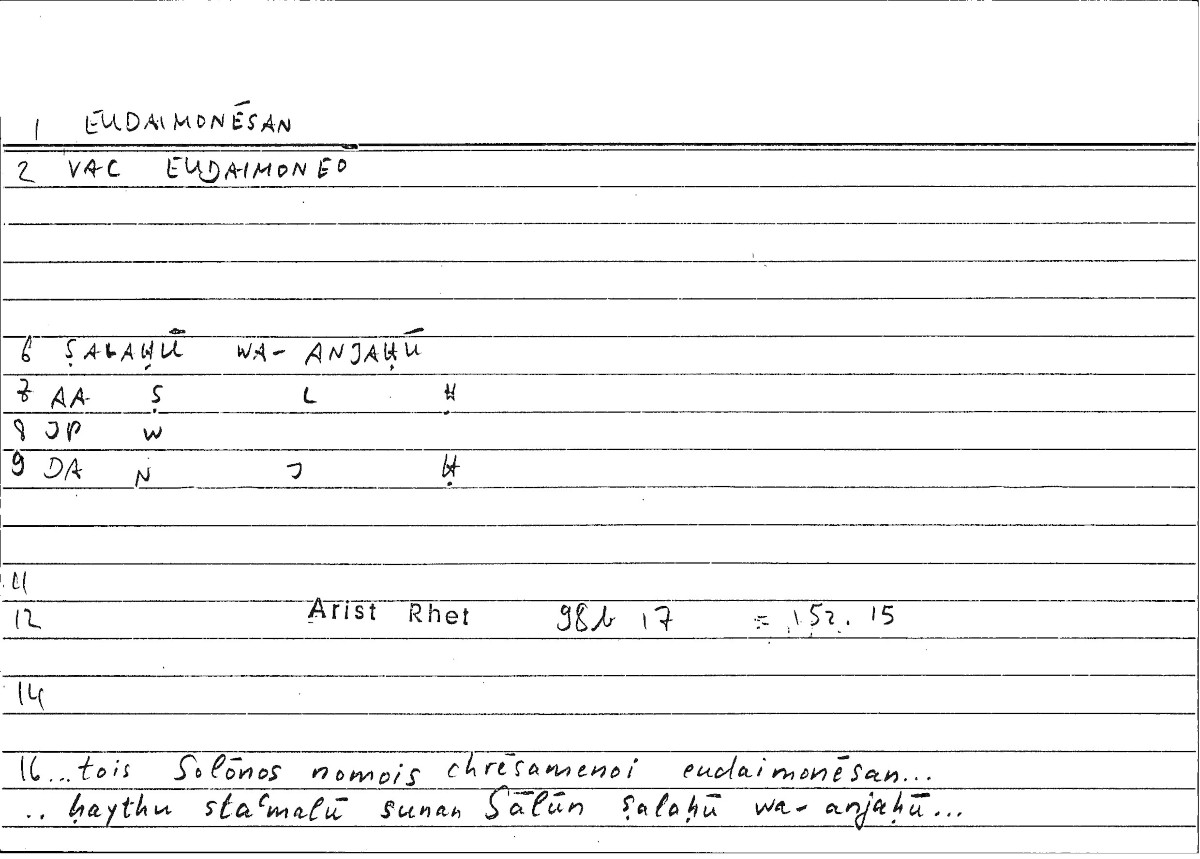 1 EUDAIMONĒSAN
2 VAC EUDAIMONEO
6 ṢALAḤŪ WA- ANJAḤŪ
7 AA Ṣ L Ḥ
8 JP W
9 DA N J Ḥ
11
12 Arist Rhet 98b 17 = 152.15
14
16 ...tois Solōnos nomois chrēsamenoi eudaimonēsan...
.. ḥaythu staʿmalū sunan Sālūn ṣalaḥū wa- anjaḥū...